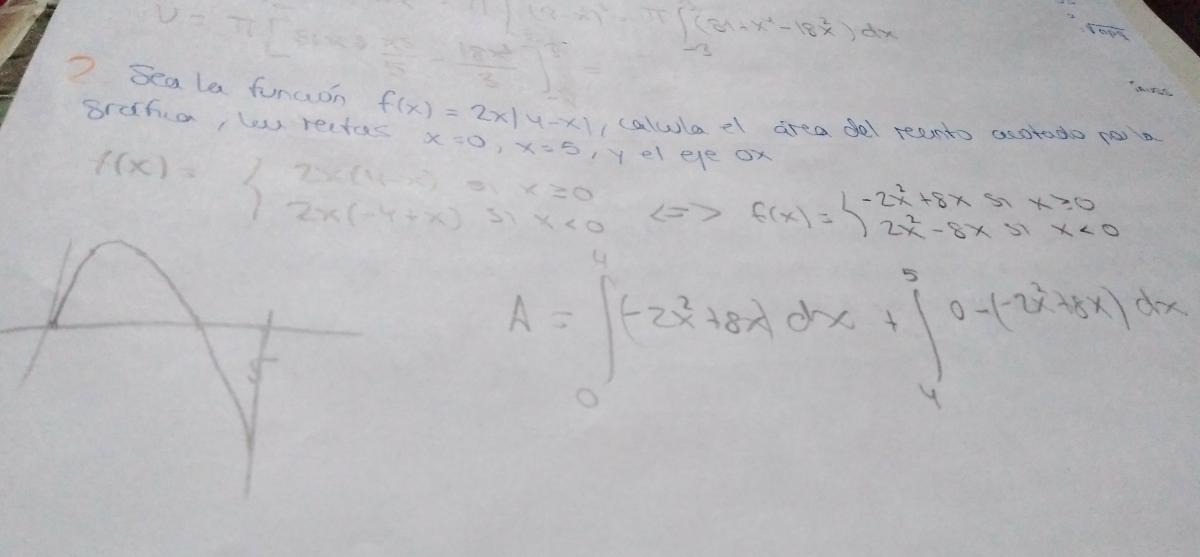 π∫₋₃ (81+x⁴-18x²)dx
2 Sea la función f(x) = 2x|4-x|, calcula el área del recinto acotado por la
gráfica, las rectas x=0, x=5, y el eje ox
f(x) = { 2x(4-x) si x≥0
2x(-4+x) si x<0
<=> f(x) = { -2x²+8x si x≥0
2x²-8x si x<0
A = ∫₀⁴ (-2x²+8x) dx + ∫₄⁵ 0-(-2x²+8x) dx
5